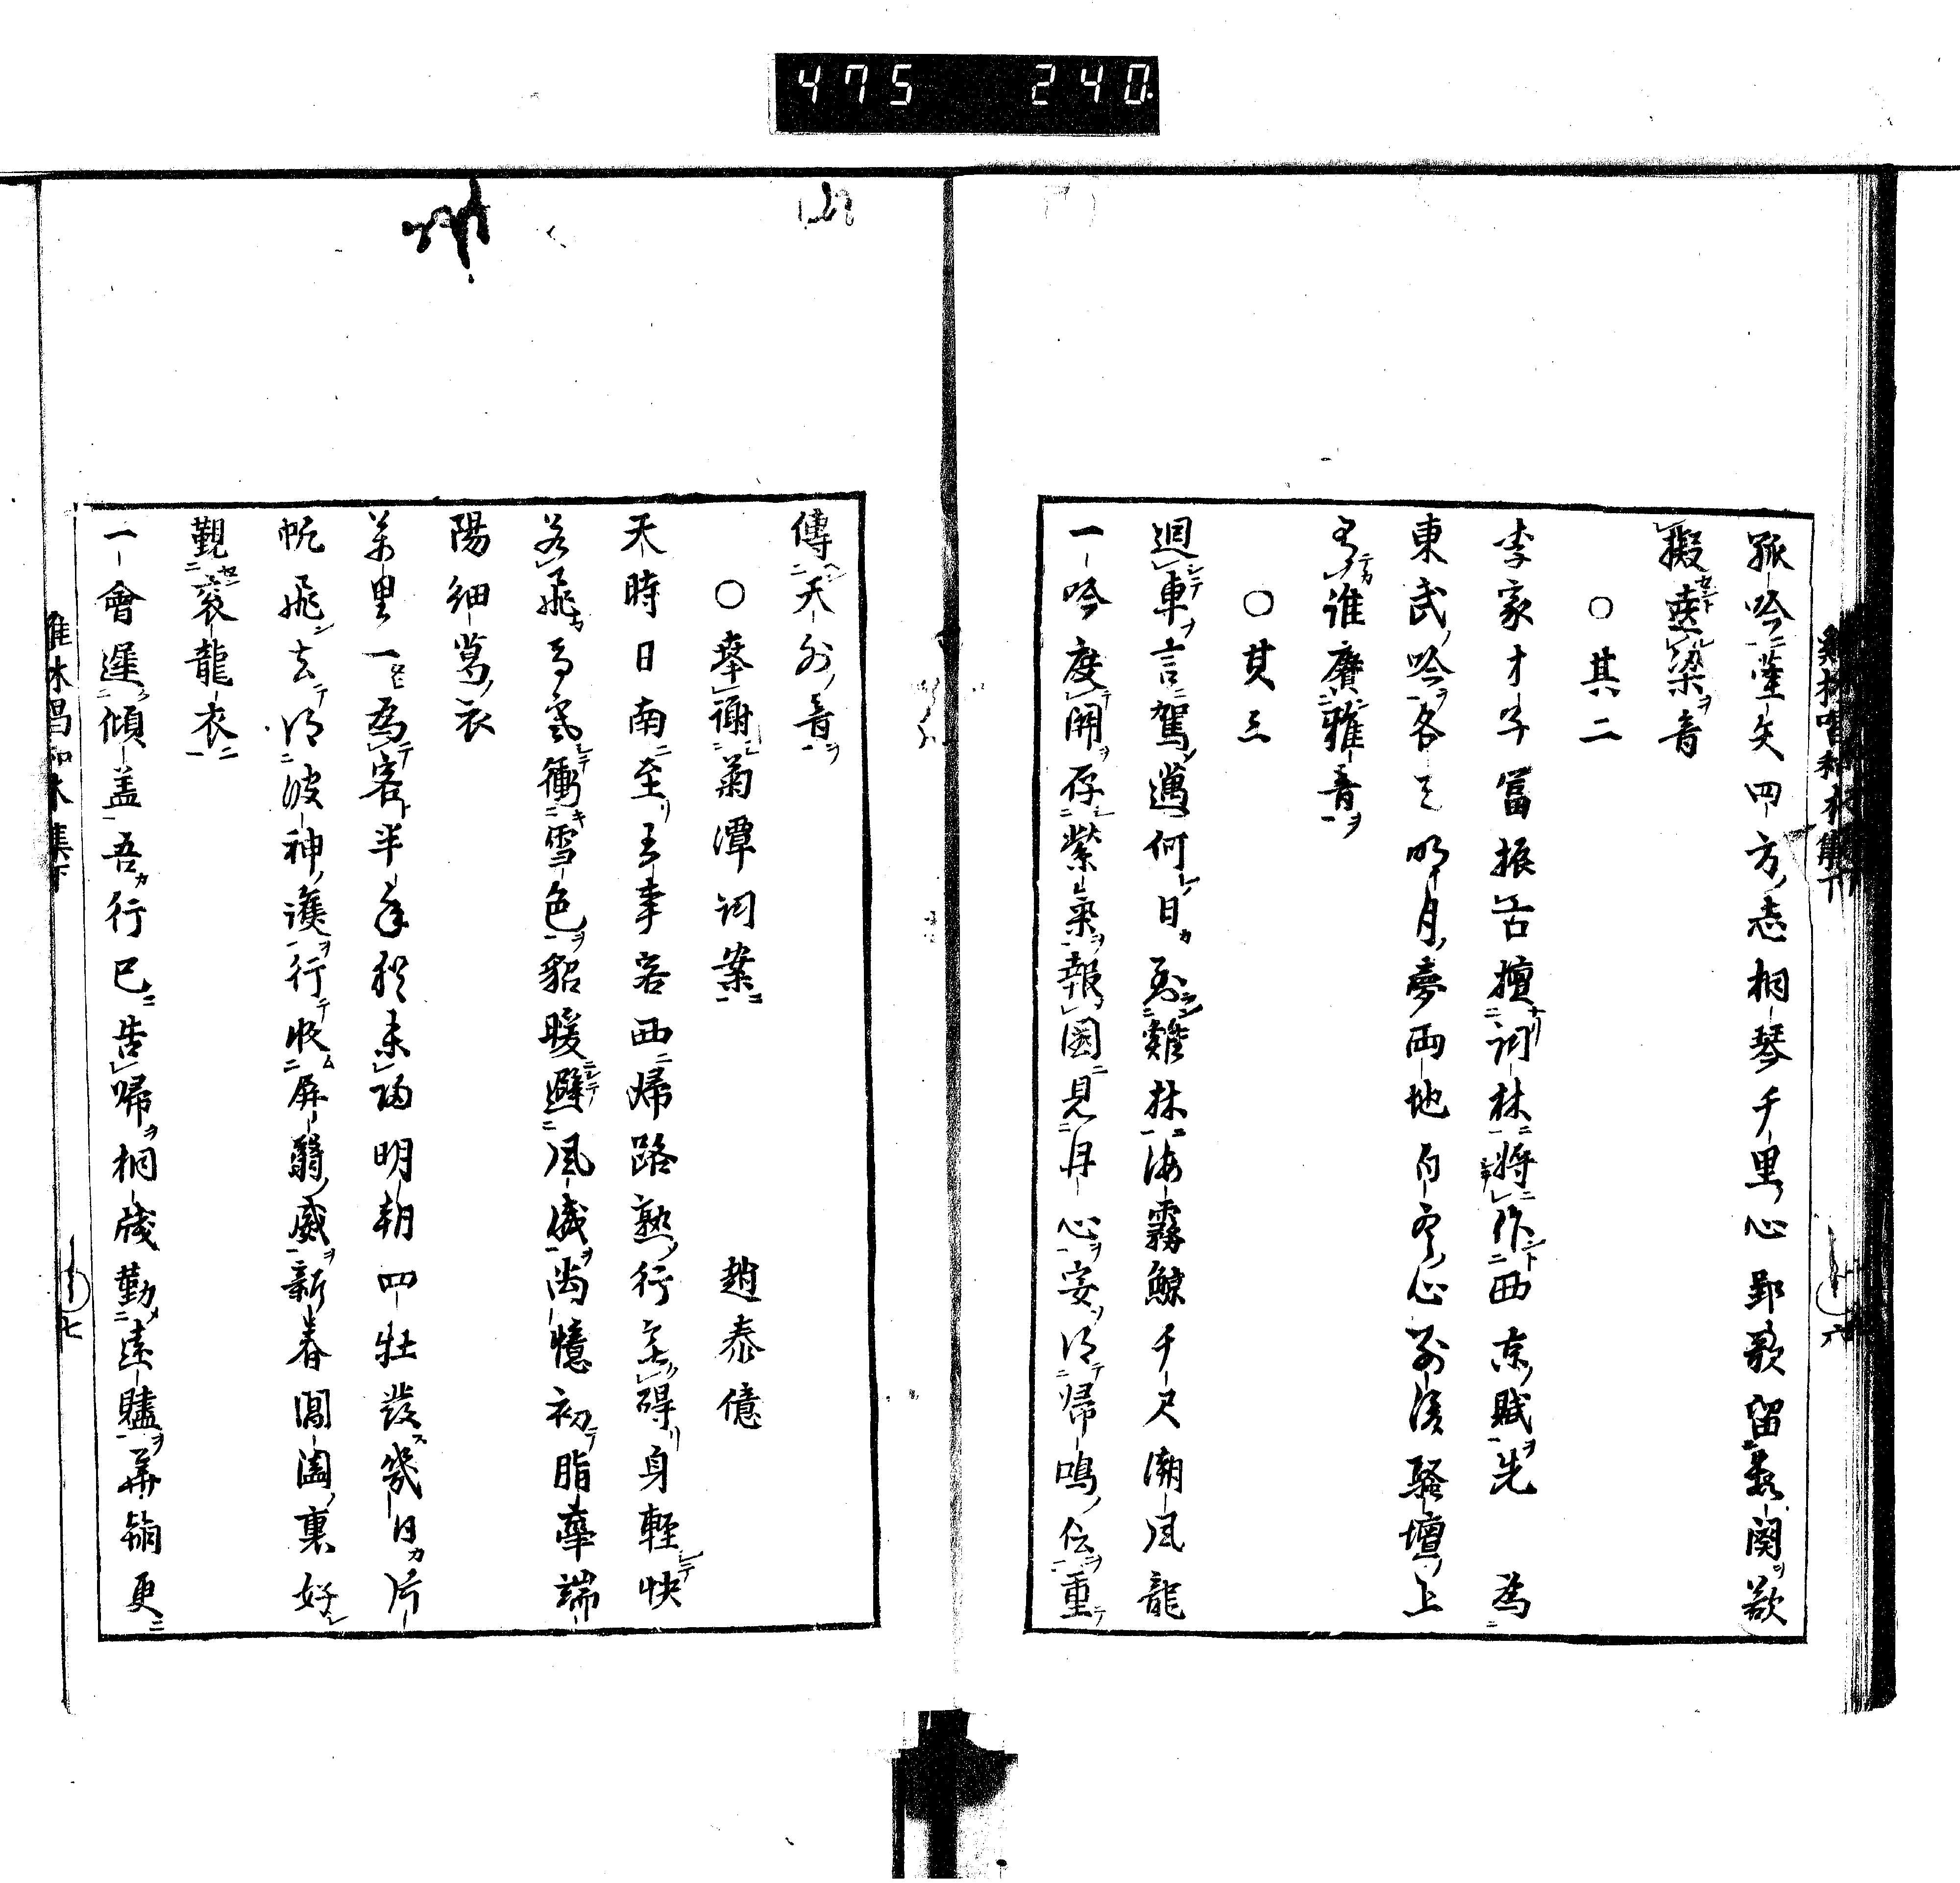 475 240
孤吟蓬矢四方志桐琴千里心郢歌留數闋欲
擬遶梁音
○其二
李家才子富振古擅詞林將作西京賦先為
東武吟各天明月夢兩地白 心 後騷壇上
誰賡雅音
○其三
迴車言駕邁何日到雞林海霧鯨千尺潮風龍
一吟度關存紫氣報國見丹心 得歸鳴 重
傳天外音
○奉謝菊潭詞案 趙泰億
天時日南至王事客西歸路熟行無碍身輕快
若飛 寒衝雪色貂暖避風威尚憶初脂舝端
陽細葛衣
萬里一為客半年猶未歸明朝四牡發幾日片
帆飛去得波神護行收屏翳威新春閶闔裏好
覲袞龍衣
一會遲傾盖吾行已告歸桐牋勤遠贐 更
雞林唱和 集下
六
七